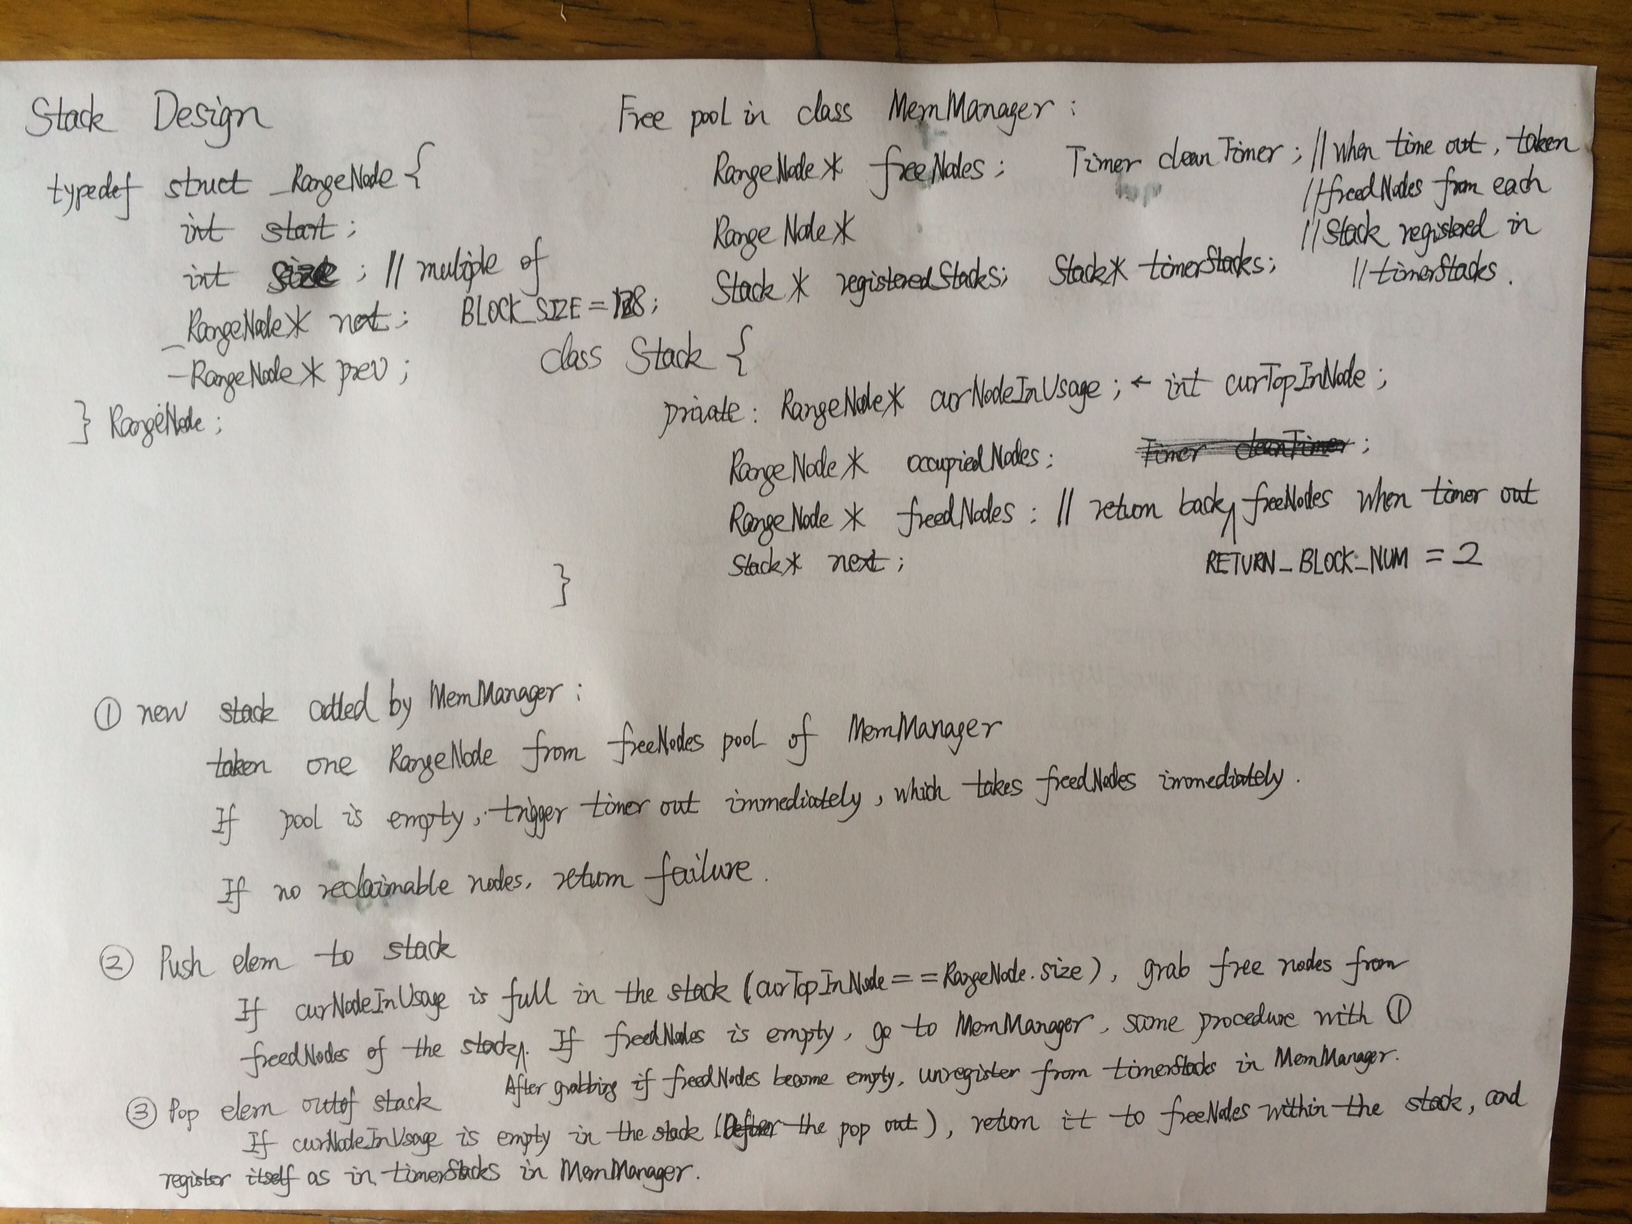 Stack Design
typedef struct _RangeNode {
int start;
int size; // multiple of
BLOCK_SIZE = 128;
_RangeNode* next;
_RangeNode* prev;
} RangeNode;
Free pool in class MemManager:
RangeNode* freeNodes; Timer cleanTimer; // when time out, taken
// freedNodes from each
// Stack registered in
// timerStacks.
RangeNode*
Stack* registeredStacks; Stack* timerStacks;
class Stack {
private: RangeNode* curNodeInUsage; ← int curTopInNode;
RangeNode* occupiedNodes; Timer cleanTimer;
RangeNode* freedNodes: // return back freeNodes when timer out
RETURN_BLOCK_NUM = 2
Stack* next;
}
① new stack added by MemManager:
taken one RangeNode from freeNodes pool of MemManager
If pool is empty, trigger timer out immediately, which takes freedNodes immediately.
If no reclaimable nodes, return failure.
② Push elem to stack
If curNodeInUsage is full in the stack (curTopInNode == RangeNode.size), grab free nodes from
freedNodes of the stack. If freedNodes is empty, go to MemManager, same procedure with ①
After grabbing if freedNodes become empty, unregister from timerStacks in MemManager.
③ Pop elem outof stack
If curNodeInUsage is empty in the stack ( the pop out), return it to freeNodes within the stack, and
register itself as in timerStacks in MemManager.